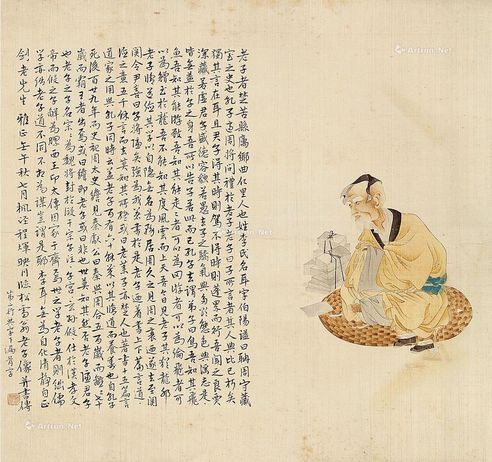 老子者楚苦縣厲鄉曲仁里人也姓李氏名耳字伯陽謚曰聃周守藏
室之史也孔子適周將問禮於老子老子曰子所言者其人與骨已朽矣
獨其言在耳且君子得其時則駕不得其時則蓬累而行吾聞之良賈
深藏若虛君子盛德容貌若愚去子之驕氣與多欲態色與淫志是
皆無益於子之身吾所以告子若是而已孔子去謂弟子曰鳥吾知其能飛
魚吾知其能游獸吾知其能走走者可以為罔游者可以為綸飛者可
以為矰至於龍吾不能知其乘風雲而上天吾今日見老子其猶龍邪
老子脩道德其學以自隱無名為務居周久之見周之衰迺遂去至關
關令尹喜曰子將隱矣彊為我著書於是老子迺著書上下篇言道
德之意五千餘言而去莫知其所終或曰老萊子亦楚人也著書十五篇言
道家之用與孔子同時云蓋老子百有六十餘歲以其脩道而養壽也自孔子
死後百廿九年而史記周太史儋見秦獻公曰秦與周合五百歲而離
歲而霸王者出焉或曰儋即老子或曰非也世莫知其然否老子隱君子
也老子之子名宗為魏將封於段干宗子注注子宮玄孫假仕於漢孝文
帝而假之子解為膠西王卬太傅因家于齊焉世之學老子者則絀儒
學亦絀老子道不同不相為謀豈謂是邪李耳無為自化清靜自正
劍老先生 雅正 壬午秋七月楓涇程 映川臨松雪翁老子像并書傳
Artron.Net